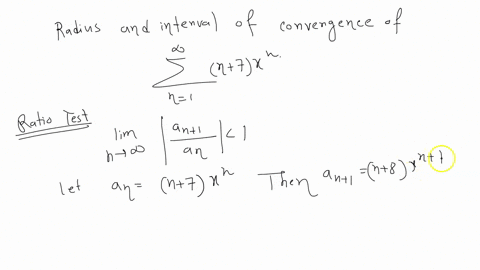 Radius and interval of convergence of
∞
∑ (n+7)xⁿ.
n=1
Ratio Test
lim | aₙ₊₁ / aₙ | < 1
n→∞
let aₙ = (n+7) xⁿ Then aₙ₊₁ = (n+8) xⁿ⁺¹